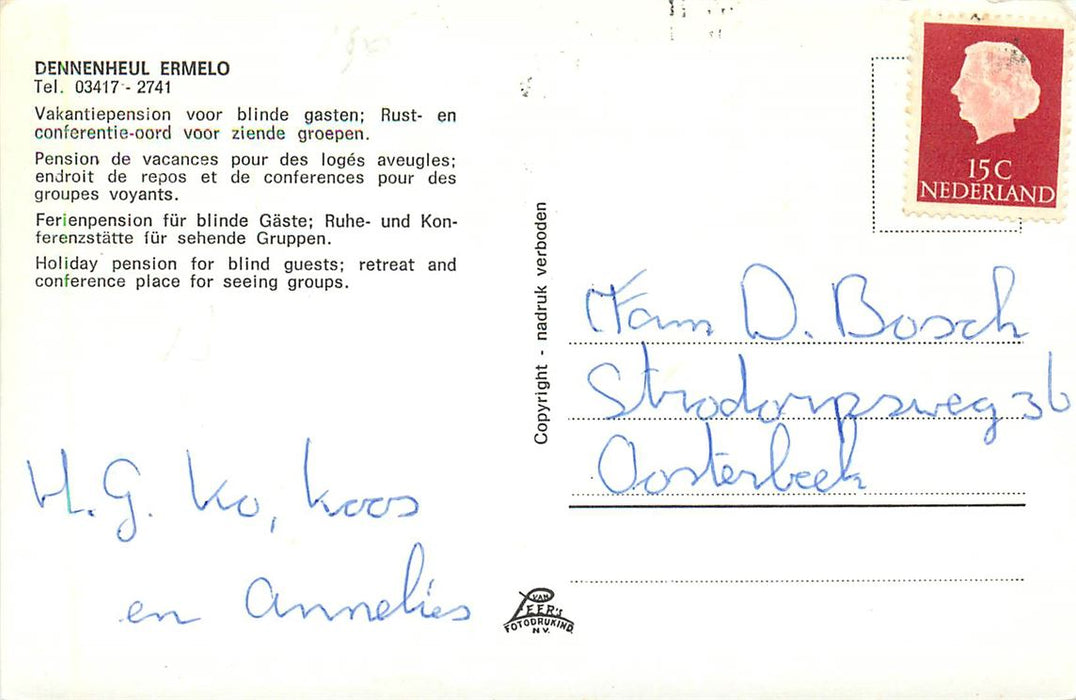 DENNENHEUL ERMELO
Tel. 03417 - 2741
Vakantiepension voor blinde gasten; Rust- en
conferentie-oord voor ziende groepen.
Pension de vacances pour des logés aveugles;
endroit de repos et de conferences pour des
groupes voyants.
Ferienpension für blinde Gäste; Ruhe- und Kon-
ferenzstätte für sehende Gruppen.
Holiday pension for blind guests; retreat and
conference place for seeing groups.
H.G. Ko, Koos
en Annelies
Copyright - nadruk verboden
VAN
LEER's
FOTODRUKIND.
N.V.
15 C
NEDERLAND
Fam D. Bosch
36
Oosterbeek